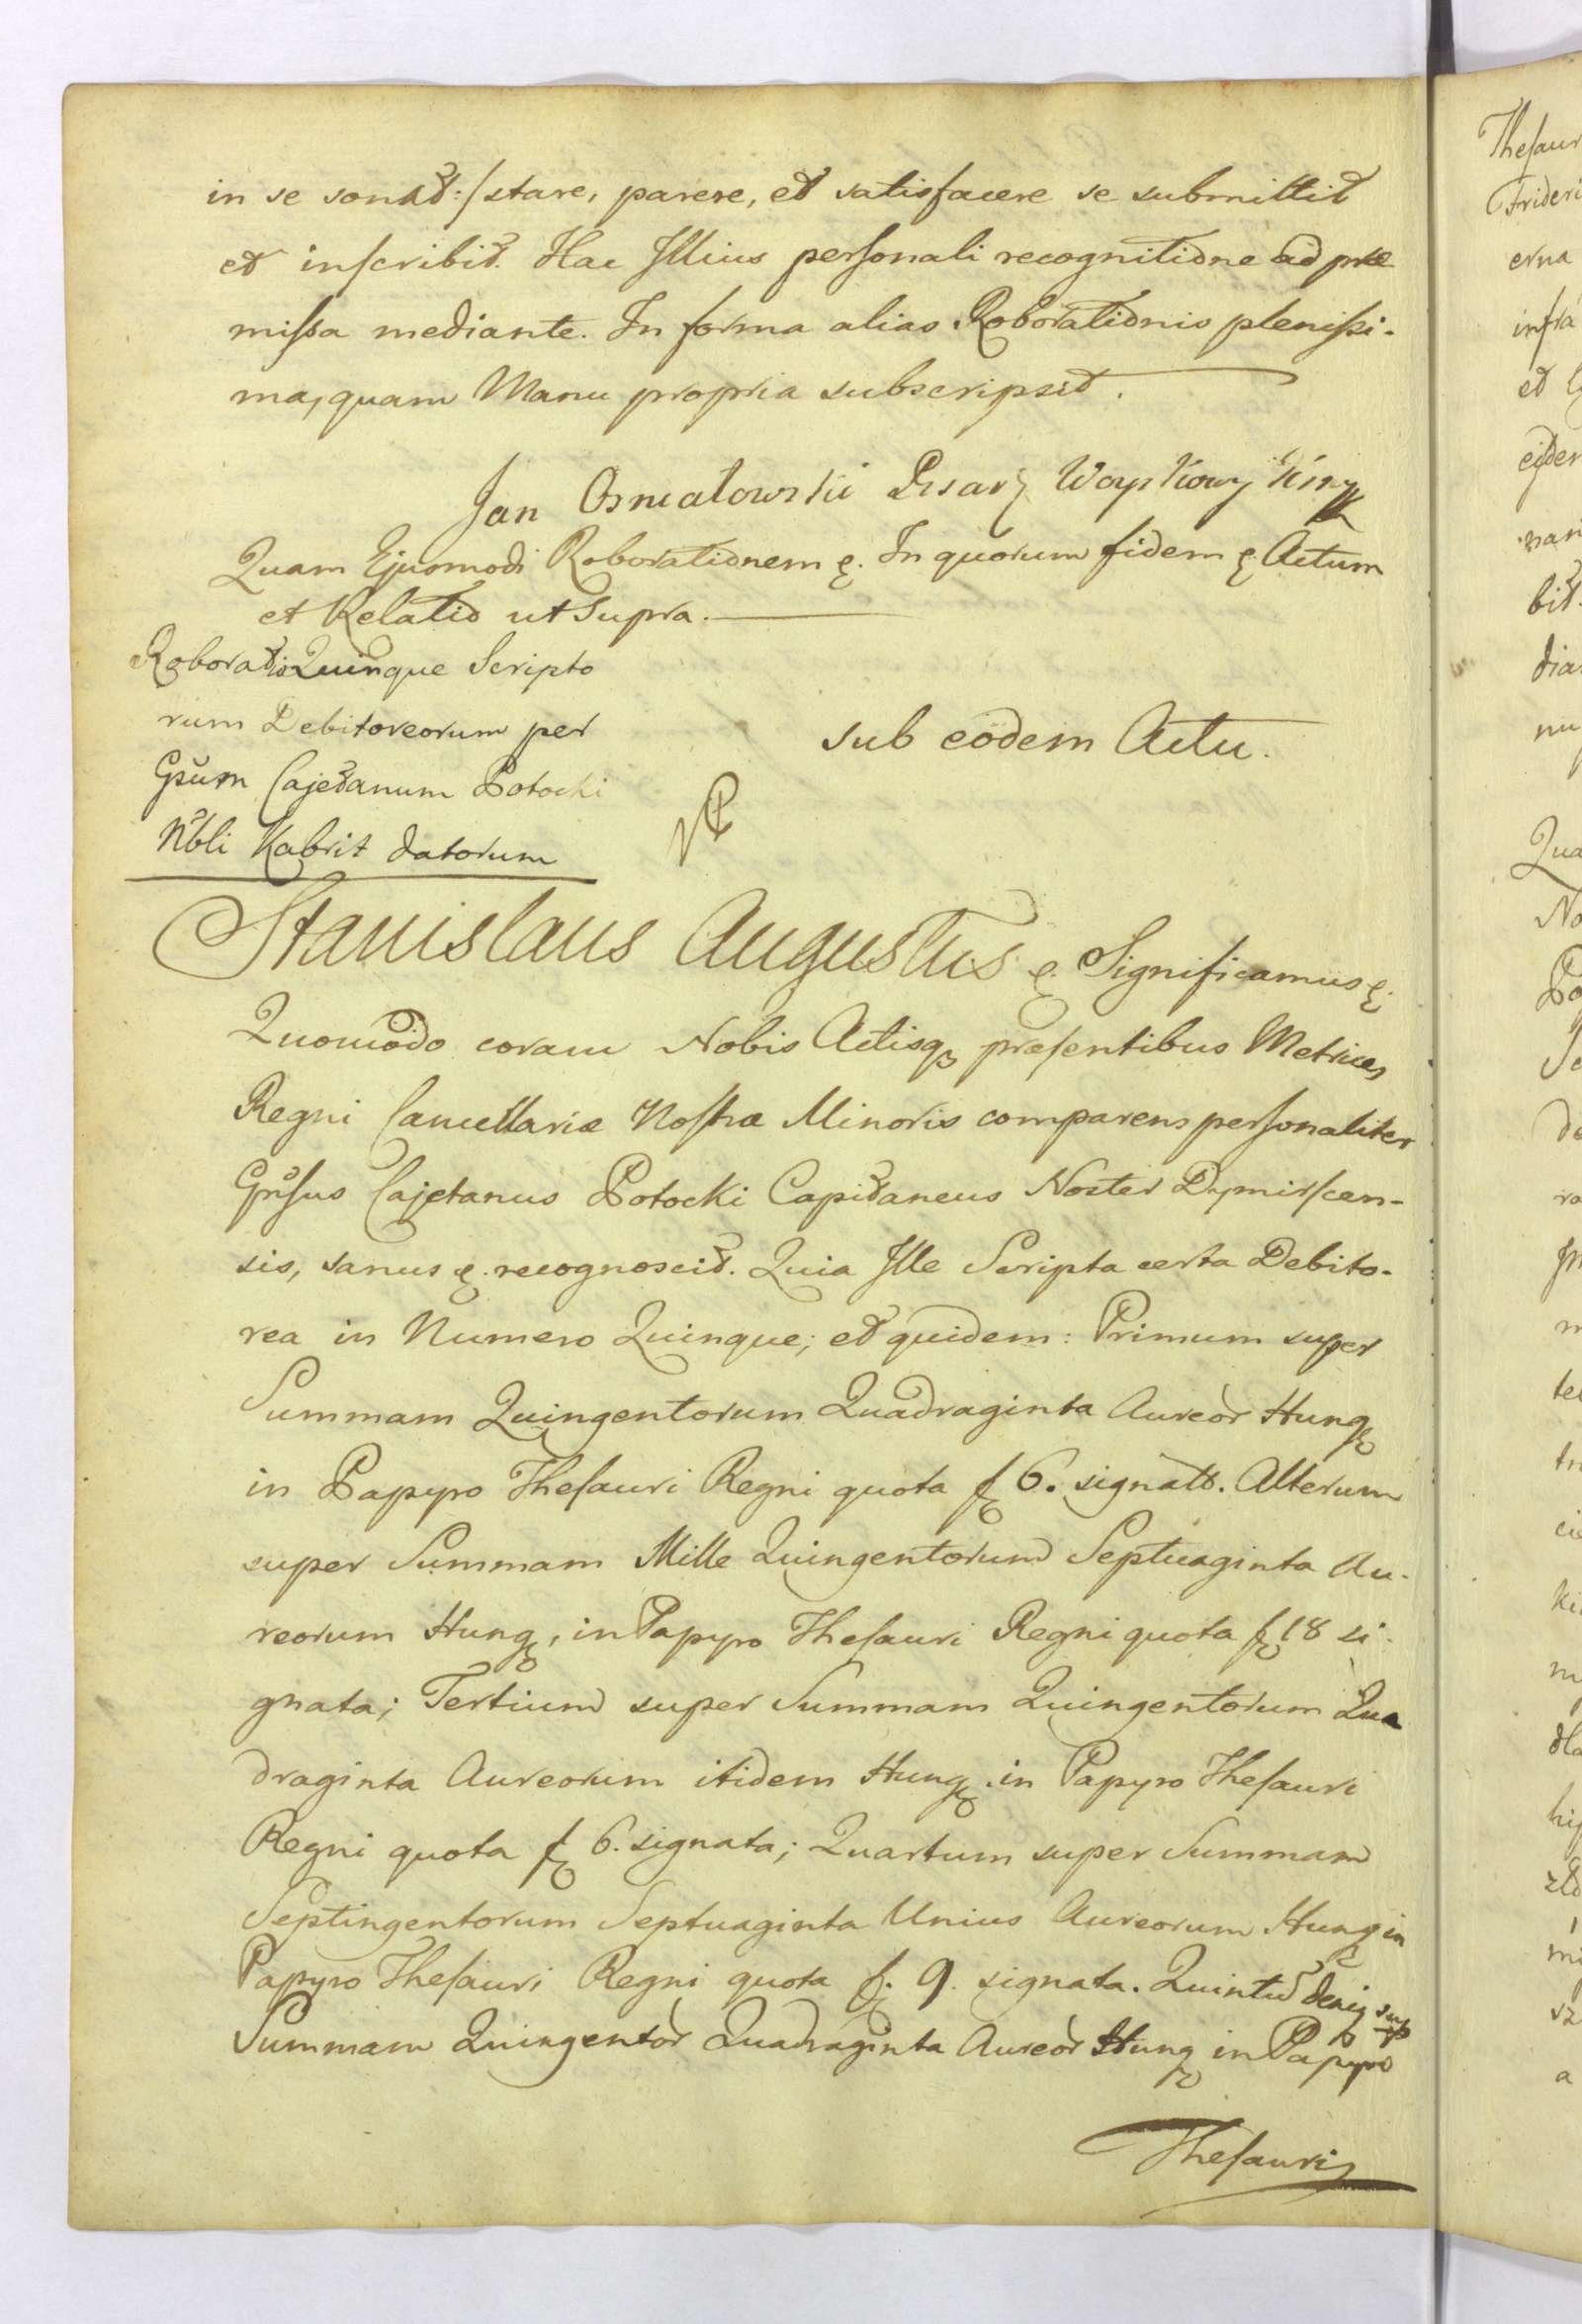 in se sonat:/ stare, parere, et satisfacere se submittit
et inscribit. Hac Illius personali recognitione ad præ
missa mediante. In forma alias Roborationis plenissi-
ma, quam Manu propria subscripsit.
Jan Osmiałowski Pisarz
Quam Ejusmodi Roborationem &. In quorum fidem &. Actum
et Relatio ut Supra.
Roboratio Quinque Scripto
rum Debitoreorum per
Gsum Cajetanum Potocki
Nbli Kabrit datorum
sub eodem Actu.
Stanislaus Augustus &. Significamus &.
Quomodo coram Nobis Actisq præsentibus Metrices
Regni Cancellariæ Nostræ Minoris comparens personaliter
Gnsus Cajetanus Potocki Capitaneus Noster Dymirscen-
sis, sanus &. recognoscit. Quia Ille Scripta certa Debito-
rea in Numero Quinque; et quidem: Primum super
Summam Quingentorum Quadraginta Aureor Hung
in Papyro Thesauri Regni quota f 6. signatt. Alterum
super Summam Mille Quingentorum Septuaginta Au-
reorum Hung, in Papyro Thesauri Regni quota f 18 si-
gnata; Tertium super Summam Quingentorum Qua
draginta Aureorum itidem Hung. in Papyro Thesauri
Regni quota f 6. signata; Quartum super Summam
Septingentorum Septuaginta Unius Aureorum Hung in
Papyro Thesauri Regni quota f. 9. signata. Quintum deniq sup
Summam Quingentor Quadraginta Aureor Hung in Papyro
Thesauri